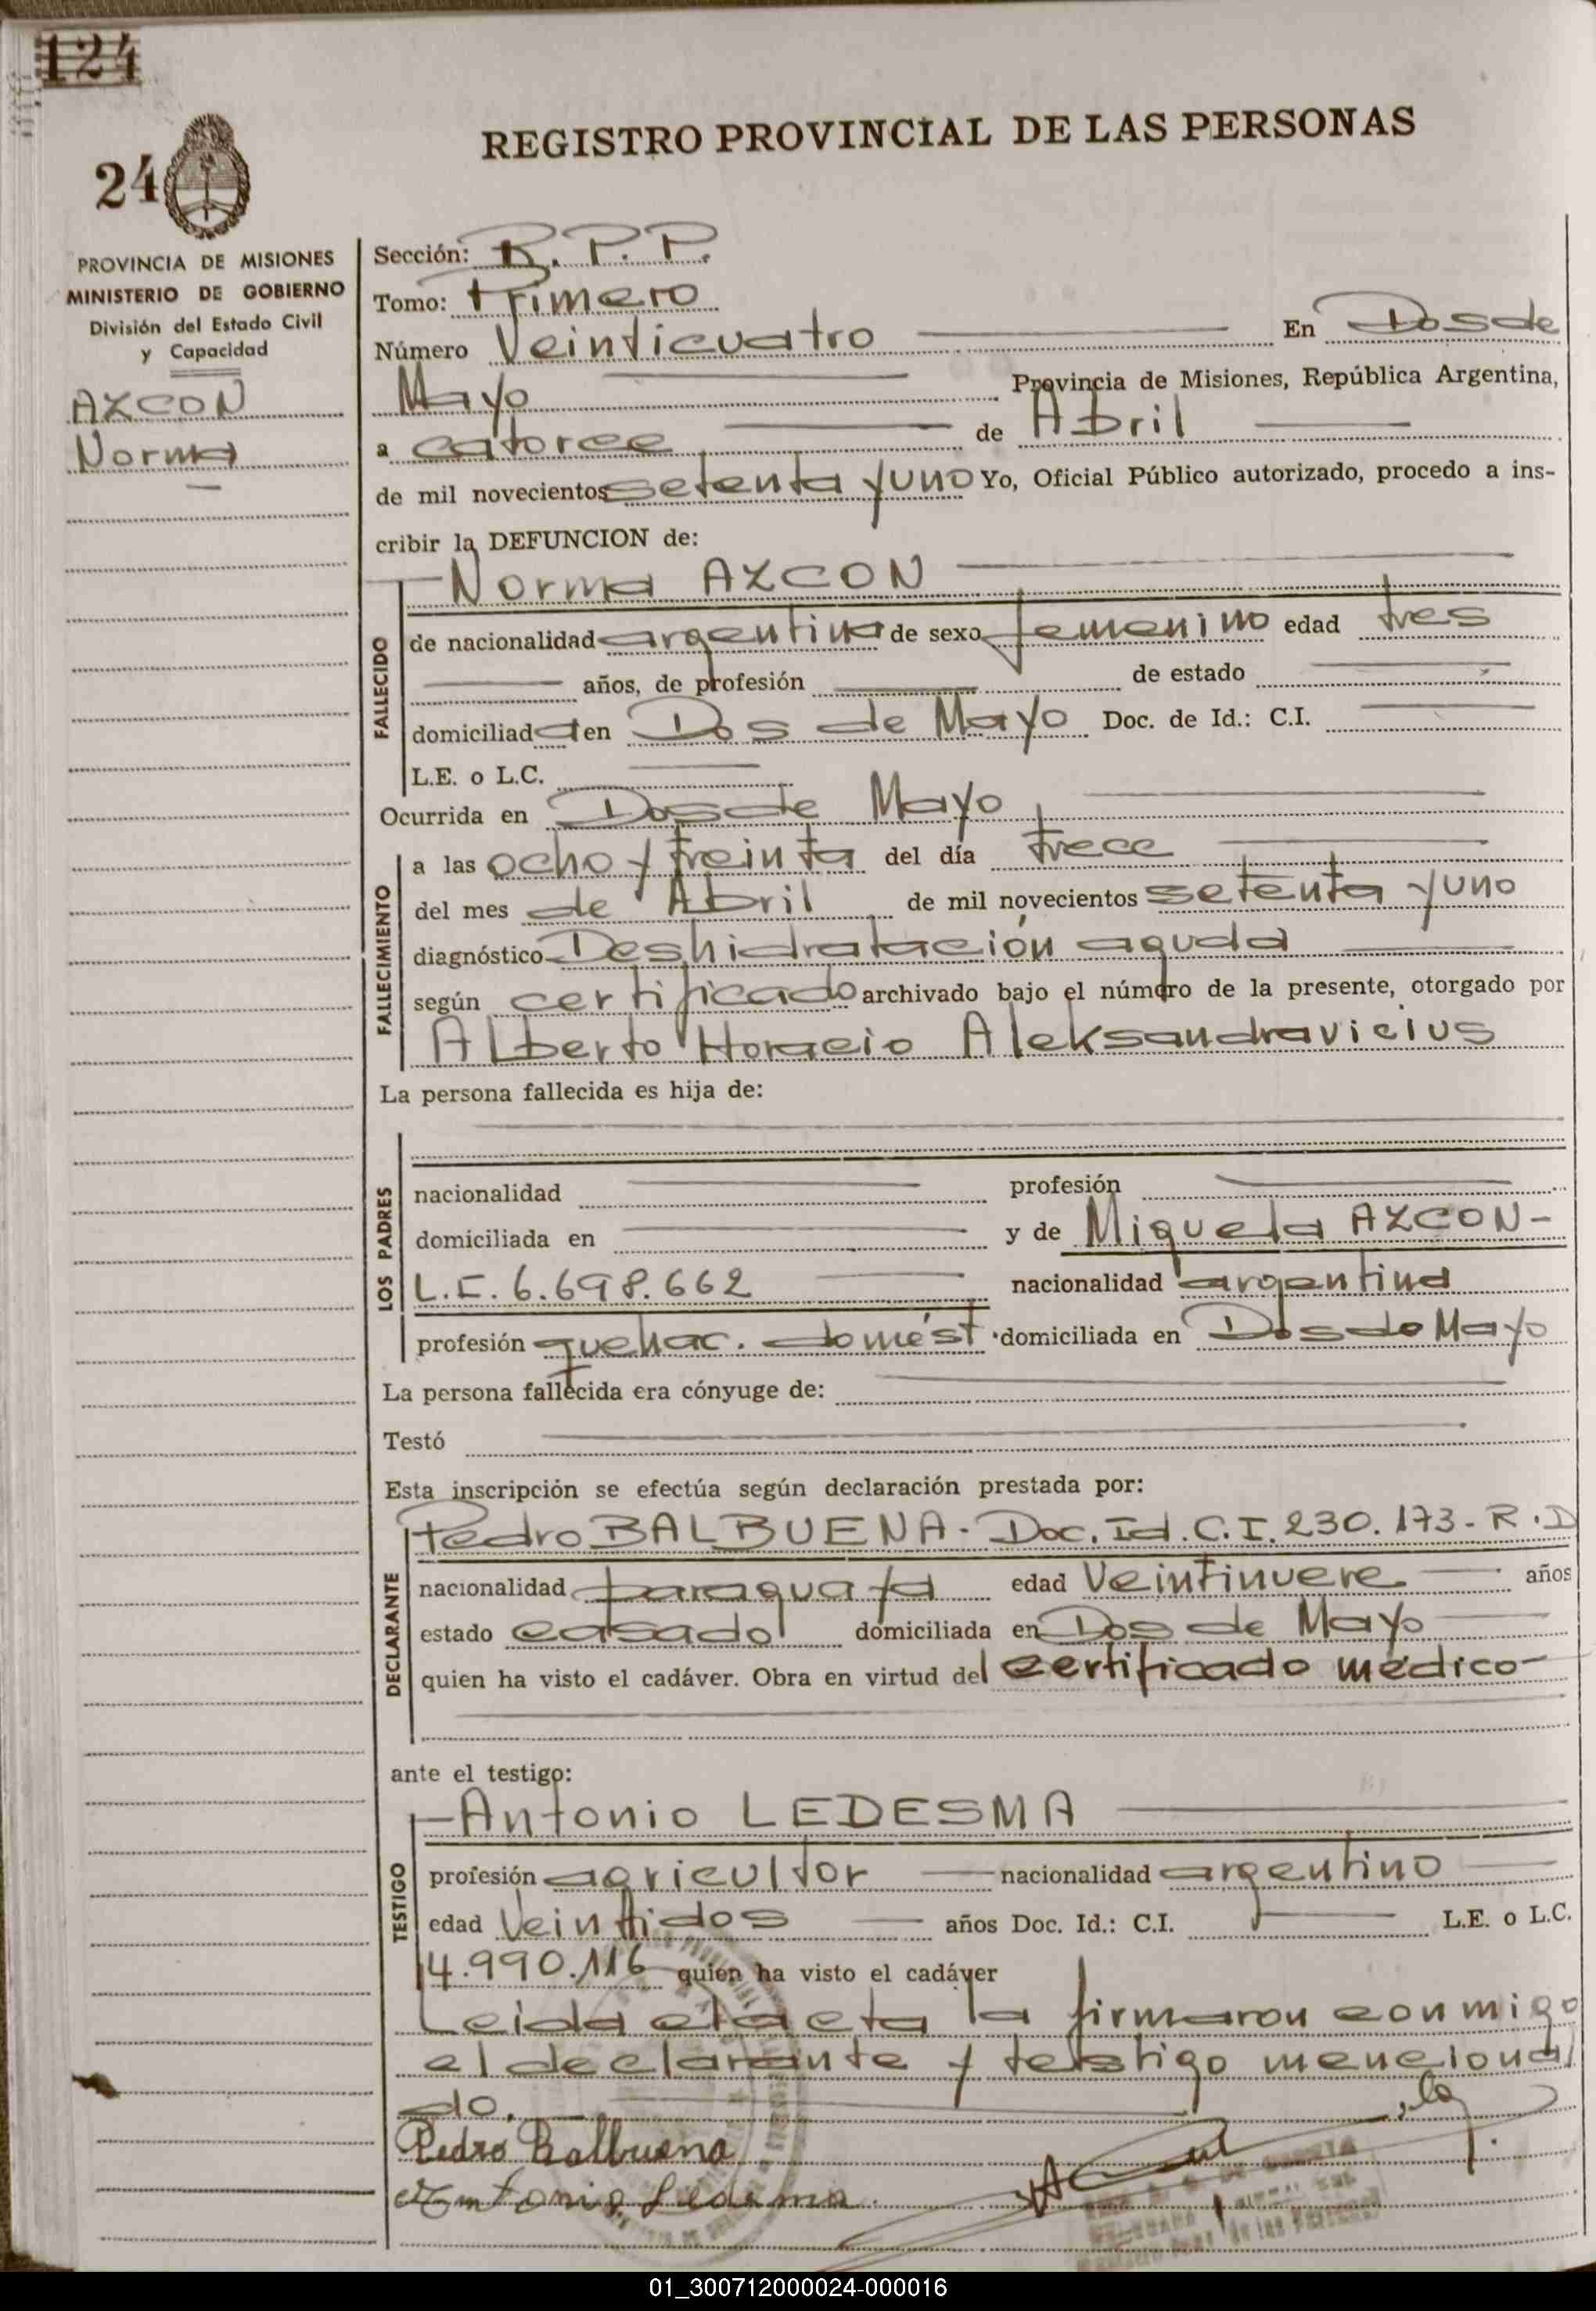 124
REGISTRO PROVINCIAL DE LAS PERSONAS
24
PROVINCIA DE MISIONES
MINISTERIO DE GOBIERNO
División del Estado Civil
y Capacidad
AZCON
Norma
Sección: R.P.P.
Tomo: primero
Número Veinticuatro En Dos de
Mayo Provincia de Misiones, República Argentina,
a catorce de Abril
de mil novecientos setenta y uno Yo, Oficial Público autorizado, procedo a ins-
cribir la DEFUNCION de:
Norma AZCON
FALLECIDO
de nacionalidad argentina de sexo femenino edad tres
años, de profesión de estado
domiciliada en Dos de Mayo Doc. de Id.: C.I.
L.E. o L.C.
Ocurrida en Dos de Mayo
FALLECIMIENTO
a las ocho y treinta del día trece
del mes de Abril de mil novecientos setenta y uno
diagnóstico Deshidratación aguda
según certificado archivado bajo el número de la presente, otorgado por
Alberto Horacio Aleksandravicius
La persona fallecida es hija de:
LOS PADRES
nacionalidad profesión
domiciliada en y de Miguela AZCON-
L.C. 6.698.662 nacionalidad argentina
profesión quehac. domést. domiciliada en Dos de Mayo
La persona fallecida era cónyuge de:
Testó
Esta inscripción se efectúa según declaración prestada por:
DECLARANTE
Pedro BALBUENA- Doc. Id. C.I. 230.173- R.D
nacionalidad paraguaya edad Veintinueve años
estado casado domiciliada en Dos de Mayo
quien ha visto el cadáver. Obra en virtud del certificado médico-
ante el testigo:
TESTIGO
Antonio LEDESMA
profesión agricultor nacionalidad argentino
edad Veintidos años Doc. Id.: C.I. L.E. o L.C.
4.990.116 quien ha visto el cadáver
Leida el acta la firmaron conmigo
el declarante y testigo menciona
do.
Pedro Balbuena
Antonio Ledesma
01_300712000024-000016